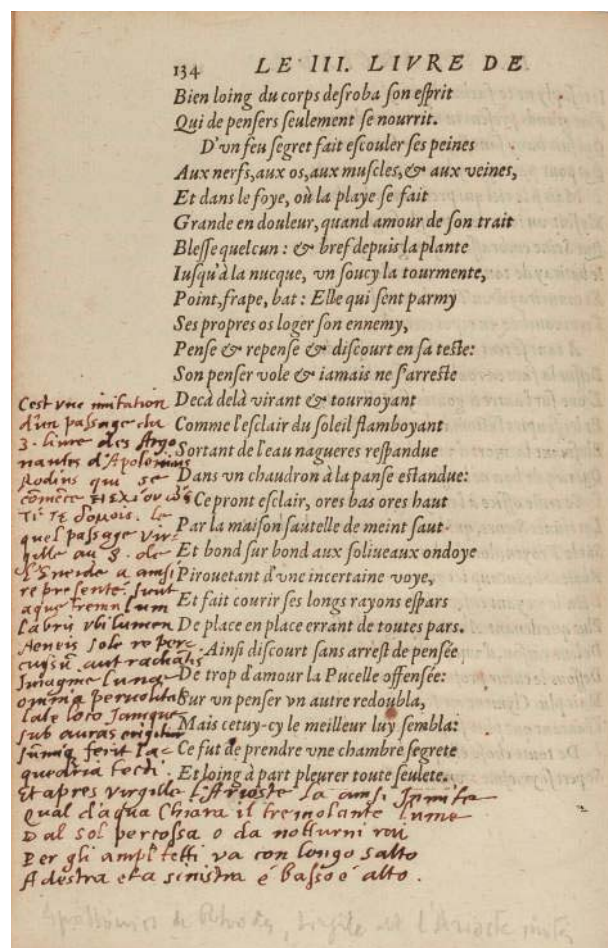 134 LE III. LIVRE DE
Bien loing du corps desroba son esprit
Qui de pensers seulement se nourrit.
D'vn feu segret fait escouler ses peines
Aux nerfs, aux os, aux muscles, & aux veines,
Et dans le foye, où la playe se fait
Grande en douleur, quand amour de son trait
Blesse quelcun : & bref depuis la plante
Iusqu'à la nucque, vn soucy la tourmente,
Point, frape, bat : Elle qui sent parmy
Ses propres os loger son ennemy,
Pense & repense & discourt en sa teste:
Son penser vole & iamais ne s'arreste
Decà delà virant & tournoyant
Comme l'esclair du soleil flamboyant
Sortant de l'eau nagueres respandue
Dans vn chaudron à la panse estandue:
Ce pront esclair, ores bas ores haut
Par la maison sautelle de meint saut
Et bond sur bond aux soliueaux ondoye
Pirouetant d'vne incertaine voye,
Et fait courir ses longs rayons espars
De place en place errant de toutes pars.
Ainsi discourt sans arrest de pensée
De trop d'amour la Pucelle offensée:
Sur vn penser vn autre redoubla,
Mais cetuy-cy le meilleur luy sembla:
Ce fut de prendre vne chambre segrete
Et loing à part pleurer toute seulete.
Cest vne imitation
d'un passage du
3. liure des Argo
nautes d'Apolonius
Rodius qui se
cōmēce
δόμοις. le
quel passage vir
gille au 8. de
l'Eneide a ainsi
represente. sicut
aquæ tremulum
labris vbi lumen
Aenis sole reper
cussū aut radiatis
Imagine lunæ
omnia peruolitat
late loco Jamque
sub auras erigitur
sūmiq ferit la
quearia tecti.
Et apres virgille l'Arioste la ainsi Jmite
Qual d'aqua Chiara il tremolante lume
Dal sol percossa o da notturni rai
Per gli ampli tetti va con longo salto
A destra et a sinistra e basso e alto.
Apollonius de Rhodes, Virgile et l'Arioste